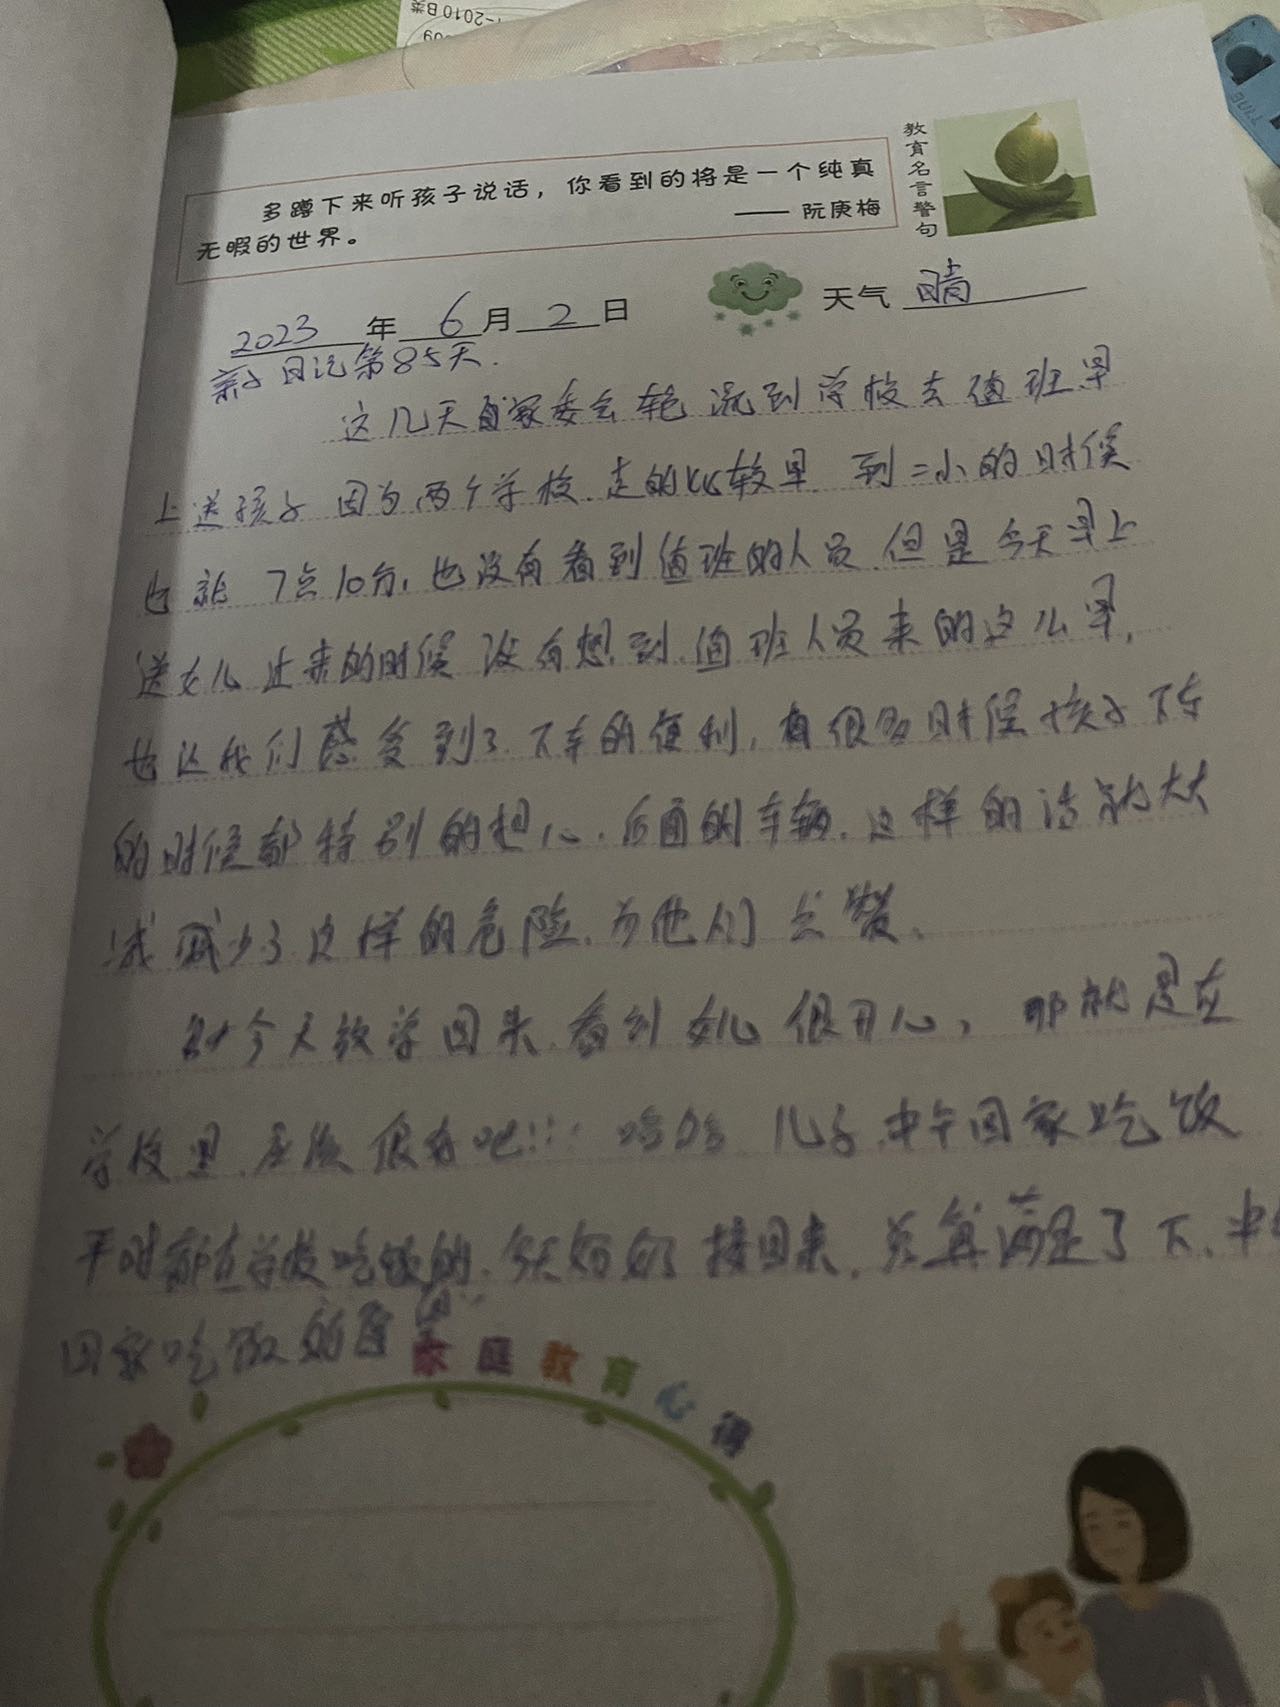 -2010 B类
多蹲下来听孩子说话，你看到的将是一个纯真
无暇的世界。
—— 阮庚梅
教育名言警句
2023年6月2日
天气 晴
亲子日记第85天.
这几天家委会轮流到学校去值班.早
上送孩子因为两个学校.走的比较早.到二小的时候
也就7点10分,也没有看到值班的人员.但是今天早上
送女儿过来的时候没有想到.值班人员来的这么早,
也让我们感受到了下车的便利,有很多时候孩子下车
的时候都特别的担心.后面的车辆.这样的话就大大
减少了这样的危险.为他们点赞.
今天放学回来.看到女儿很开心,那就是在
学校里.应该很好吧!!! 哈哈 儿子.中午回家吃饭
平时都在学校吃饭的.今天奶奶接回来.总算满足了下.中午
回家吃饭的愿望
家庭教育心得